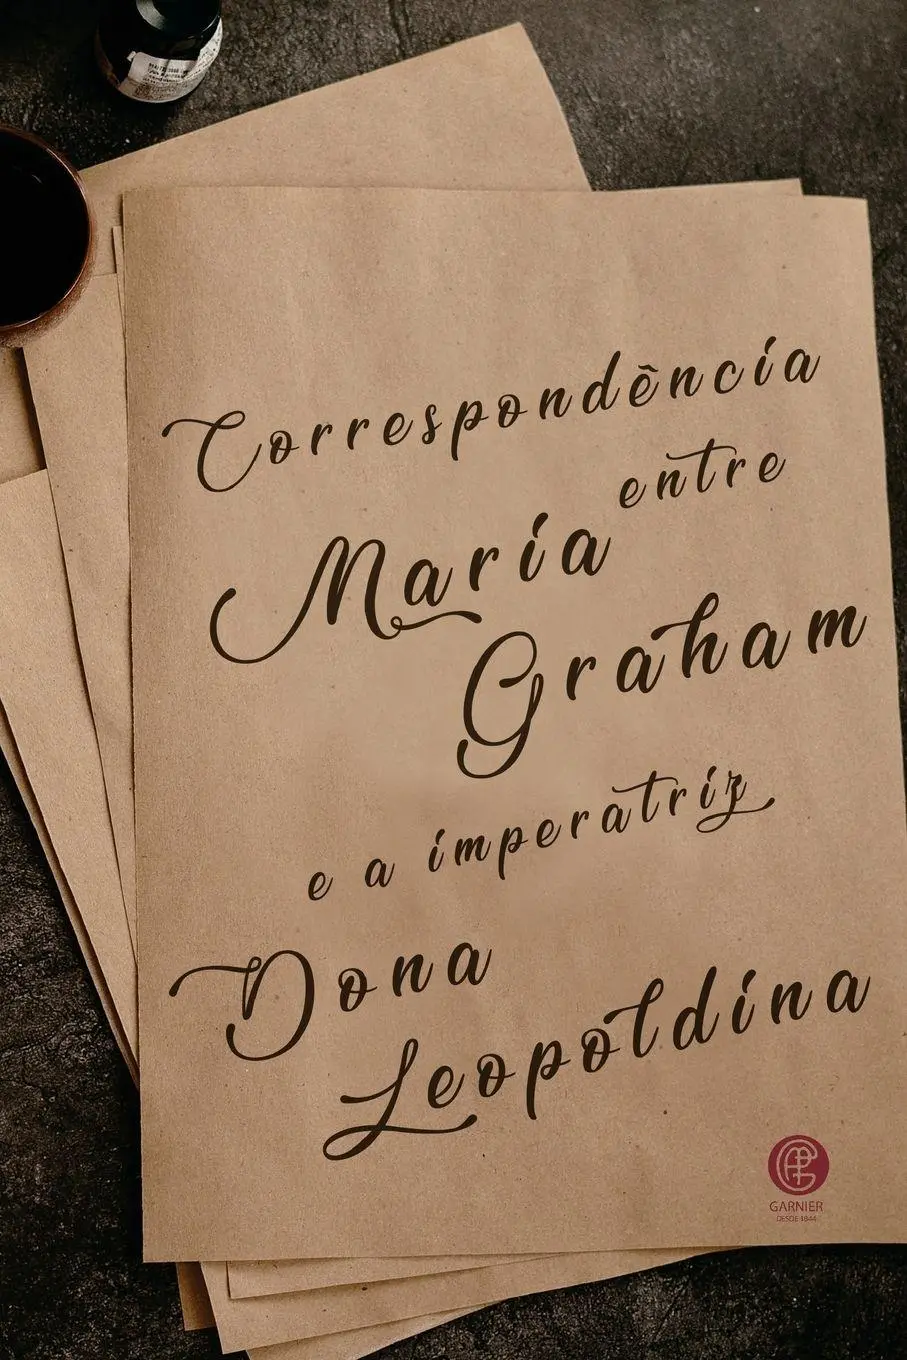 Correspondência
entre
Maria
Graham
e a imperatriz
Dona
Leopoldina
GARNIER
DESDE 1844